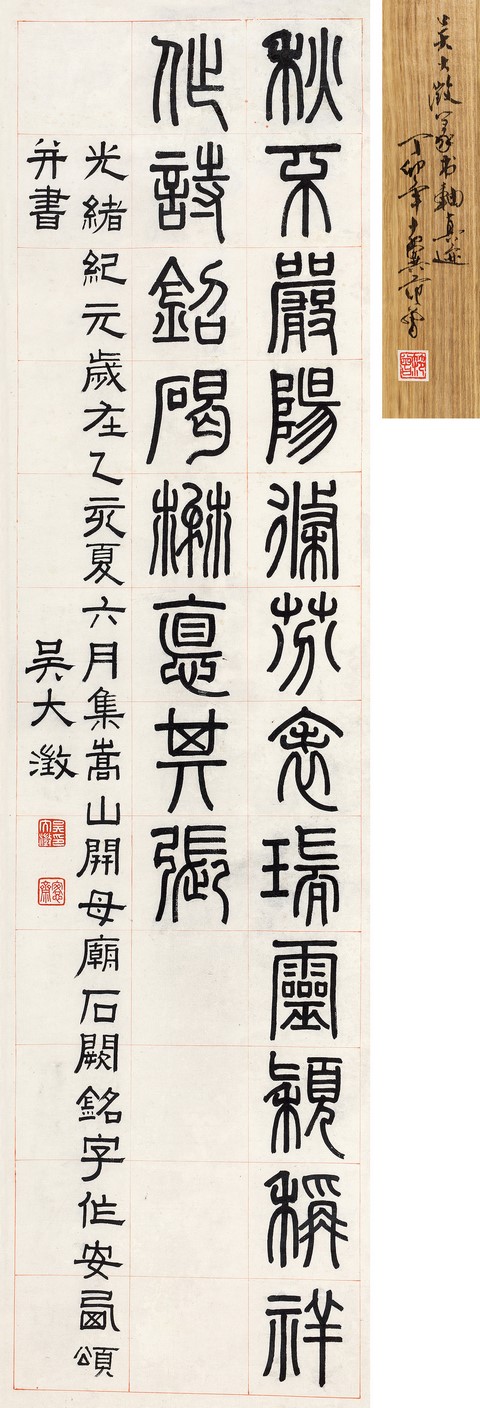 秋不嚴陽芬瑞靈穎稱祥
作詩銘碣楙悳其張
光緒紀元歲在乙亥夏六月集嵩山開母廟石闕銘字作安西頌
并書 吳大澂
吳大澂篆书軸真迹
丁卯年十翼范曾